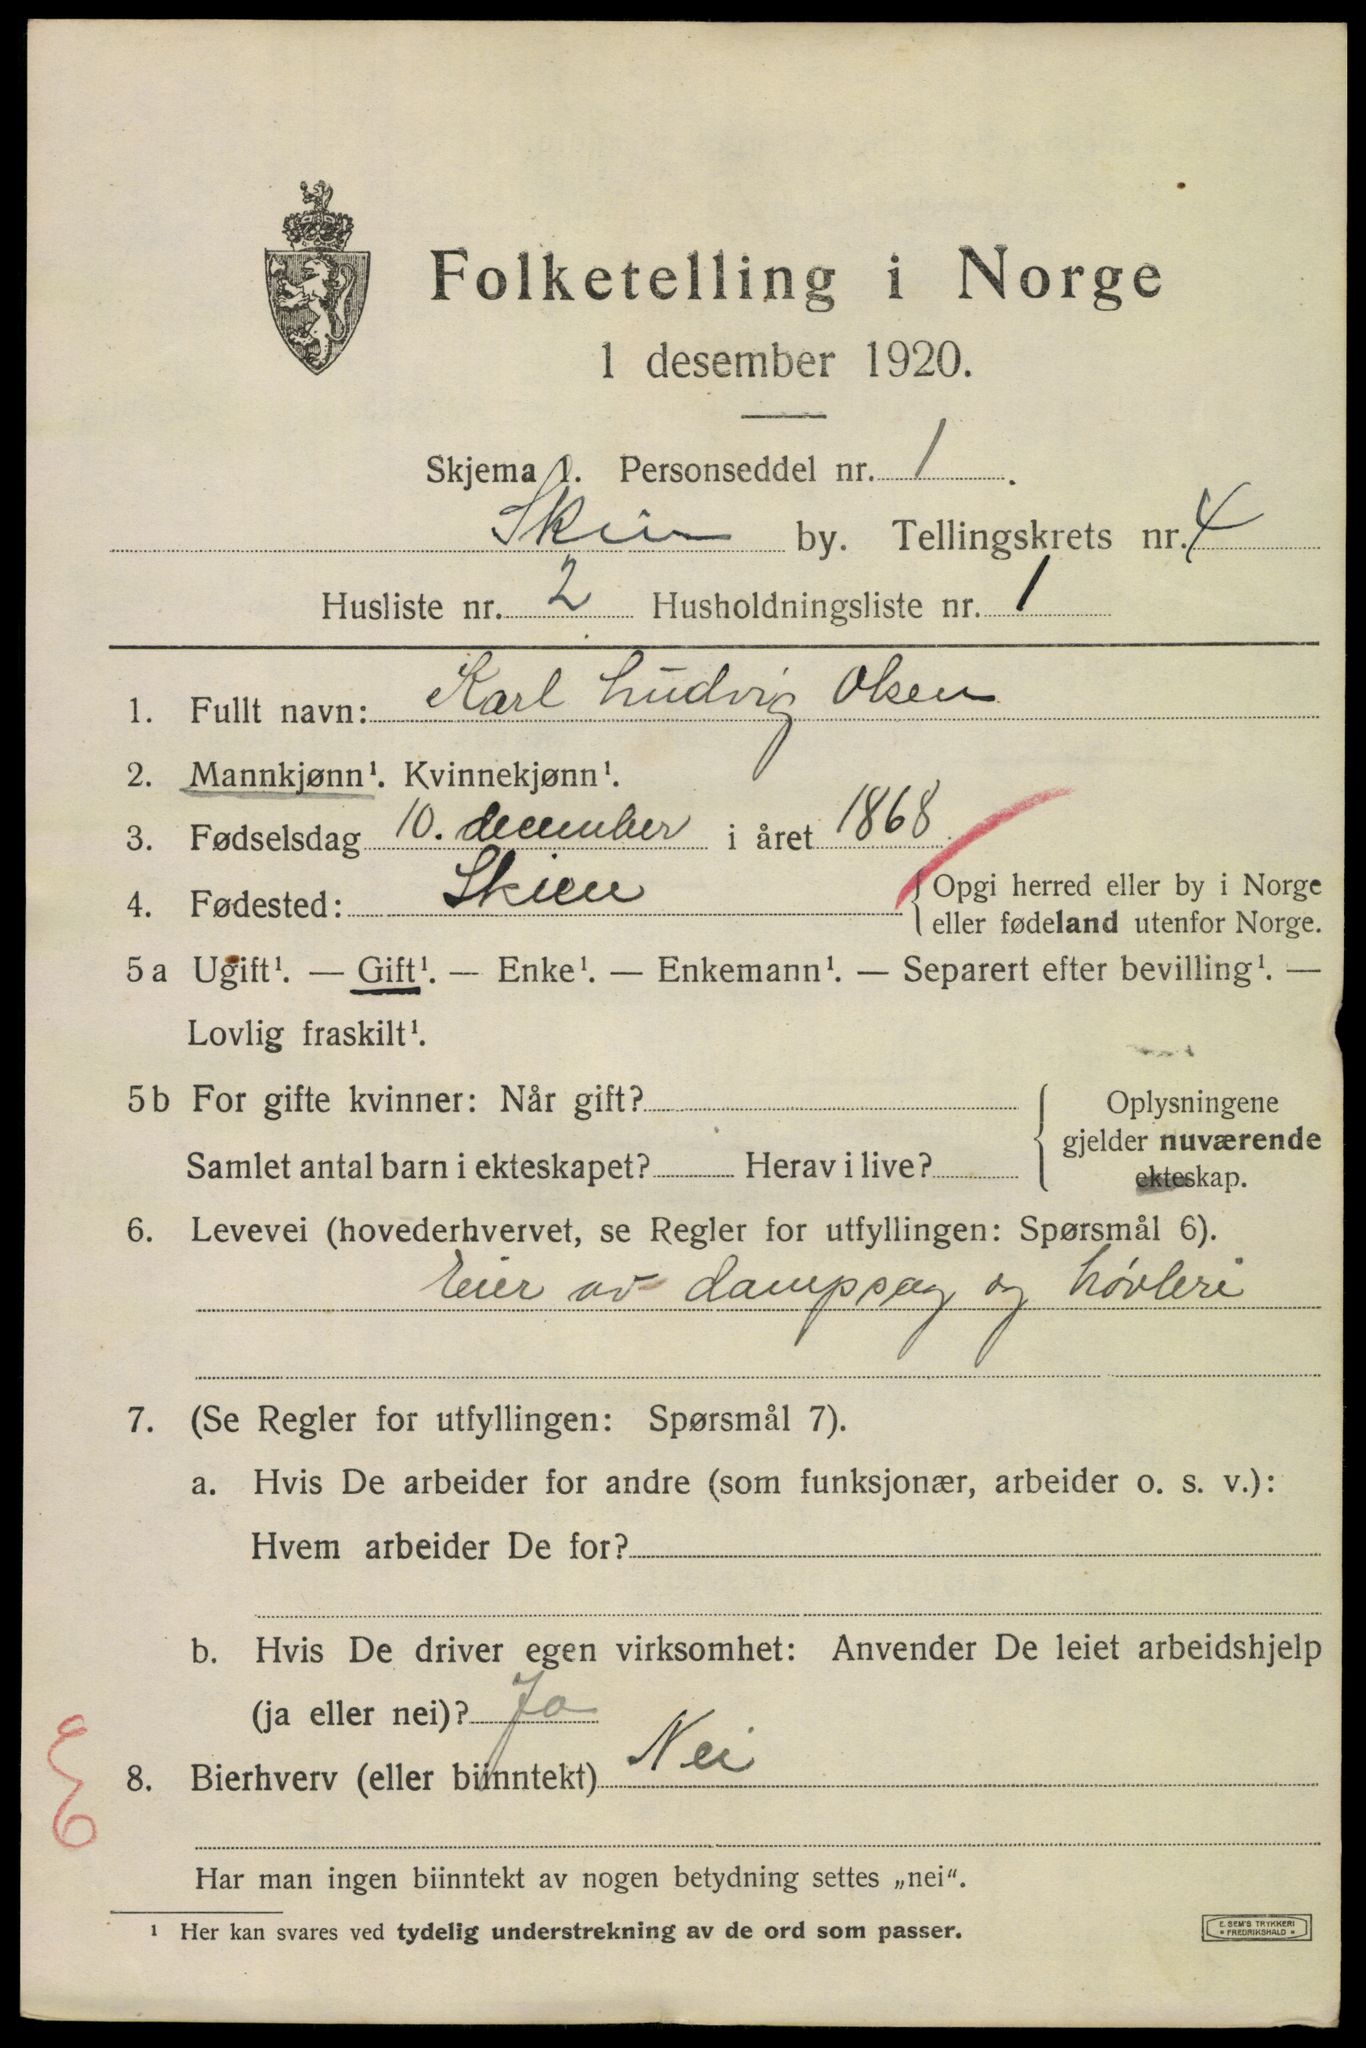 Folketelling i Norge
1 desember 1920.
Skjema 1. Personseddel nr. 1.
Skien by. Tellingskrets nr. 4
Husliste nr. 2 Husholdningsliste nr. 1
1. Fullt navn: Karl Ludvig Olsen
2. Mannkjønn¹. Kvinnekjønn¹.
3. Fødselsdag 10. december i året 1868
4. Fødested: Skien {Opgi herred eller by i Norge
eller fødeland utenfor Norge.
5 a Ugift¹. — Gift¹. — Enke¹. — Enkemann¹. — Separert efter bevilling¹. —
Lovlig fraskilt¹.
5 b For gifte kvinner: Når gift?
Samlet antal barn i ekteskapet? Herav i live?
Oplysningene
gjelder nuværende
ekteskap.
6. Levevei (hovederhvervet, se Regler for utfyllingen: Spørsmål 6).
Eier av dampsag og høvleri
7. (Se Regler for utfyllingen: Spørsmål 7).
a. Hvis De arbeider for andre (som funksjonær, arbeider o. s. v.):
Hvem arbeider De for?
b. Hvis De driver egen virksomhet: Anvender De leiet arbeidshjelp
(ja eller nei)? Ja
8. Bierhverv (eller biinntekt) Nei
Har man ingen biinntekt av nogen betydning settes „nei“.
¹ Her kan svares ved tydelig understrekning av de ord som passer.
E. SEM'S TRYKKERI
* FREDRIKSHALD *